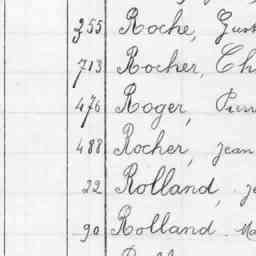 355 Roche, Gust
713 Rocher, Ch
476 Roger, Pierr
488 Rocher, Jean
22 Rolland, Je
90 Rolland. Ma